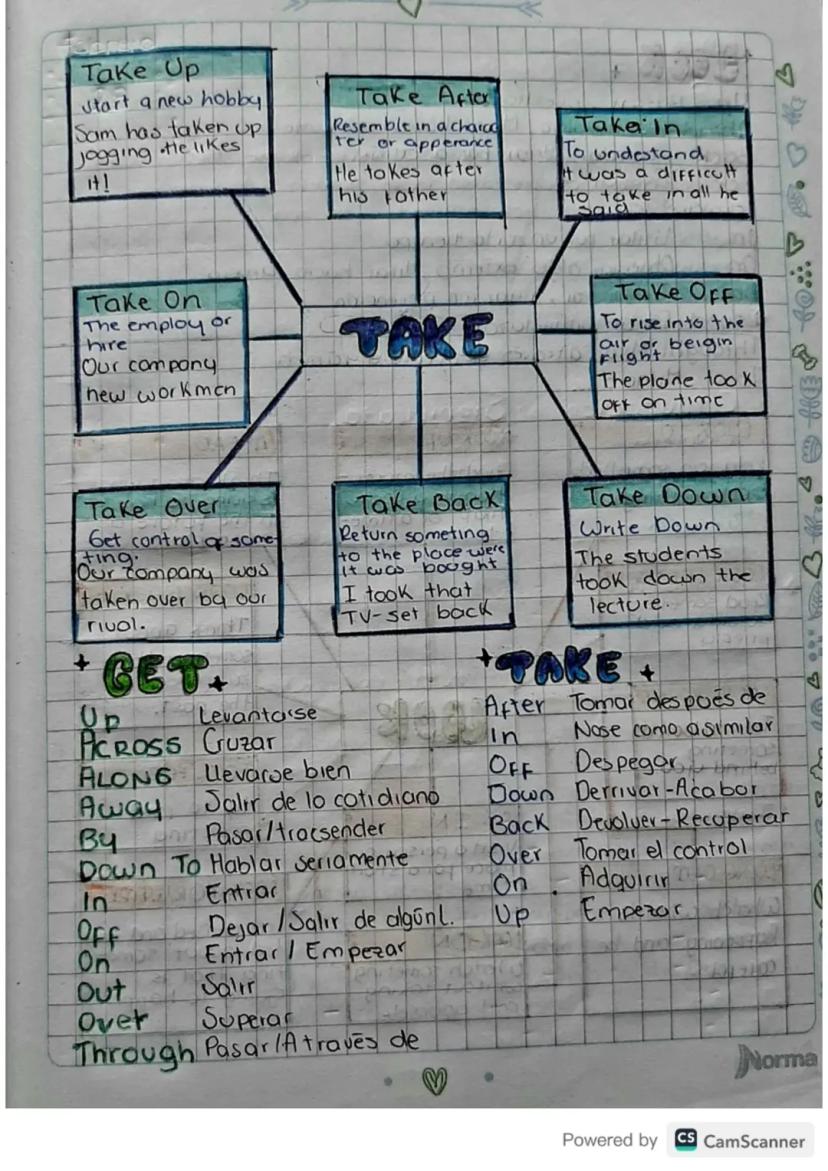 Take Up
start a new hobby
Sam has taken up
jogging. He likes
it!
Take After
Resemble in a charac
ter or apperance
He takes after
his father
Take In
To undestand
It was a difficult
to take in all he
said
Take On
The employ or
hire
Our company
new workmen
TAKE
Take Off
To rise into the
air or beigin
Flight
The plane took
off on time
Take Over
Get control of some-
ting.
Our company was
taken over by our
rival.
Take Back
Return someting
to the place were
it was bought
I took that
TV-set back
Take Down
Write Down
The students
took down the
lecture.
GET
Up Levantarse
Across Cruzar
Along Llevarse bien
Away Salir de lo cotidiano
By Pasar/tracsender
Down To Hablar seriamente
In Entrar
Off Dejar/Salir de algúnl.
On Entrar / Empezar
Out Salir
Over Superar
Through Pasar/A través de
TAKE
After Tomar después de
In Nose como asimilar
Off Despegar
Down Derrivar-Acabar
Back Devolver-Recuperar
Over Tomar el control
On Adquirir
Up Empezar
Norma
Powered by CS CamScanner